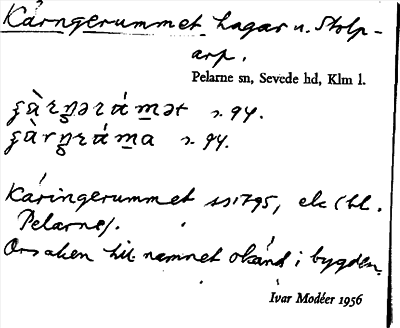 Kärngerummet, hagar u. Stolp-
arp.
Pelarne sn, Sevede hd, Klm l.
s. 94.
s. 94.
Käringerummet 1795, ek (bl.
Pelarne).
Orsaken till namnet okänd i bygden.
Ivar Modéer 1956